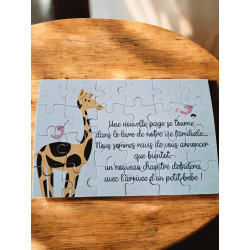 Une nouvelle page se tourne
dans le livre de notre vie familiale...
Nous sommes ravis de vous annoncer
que bientôt
un nouveau chapitre débutera
avec l'arrivée d'un petit bébé !